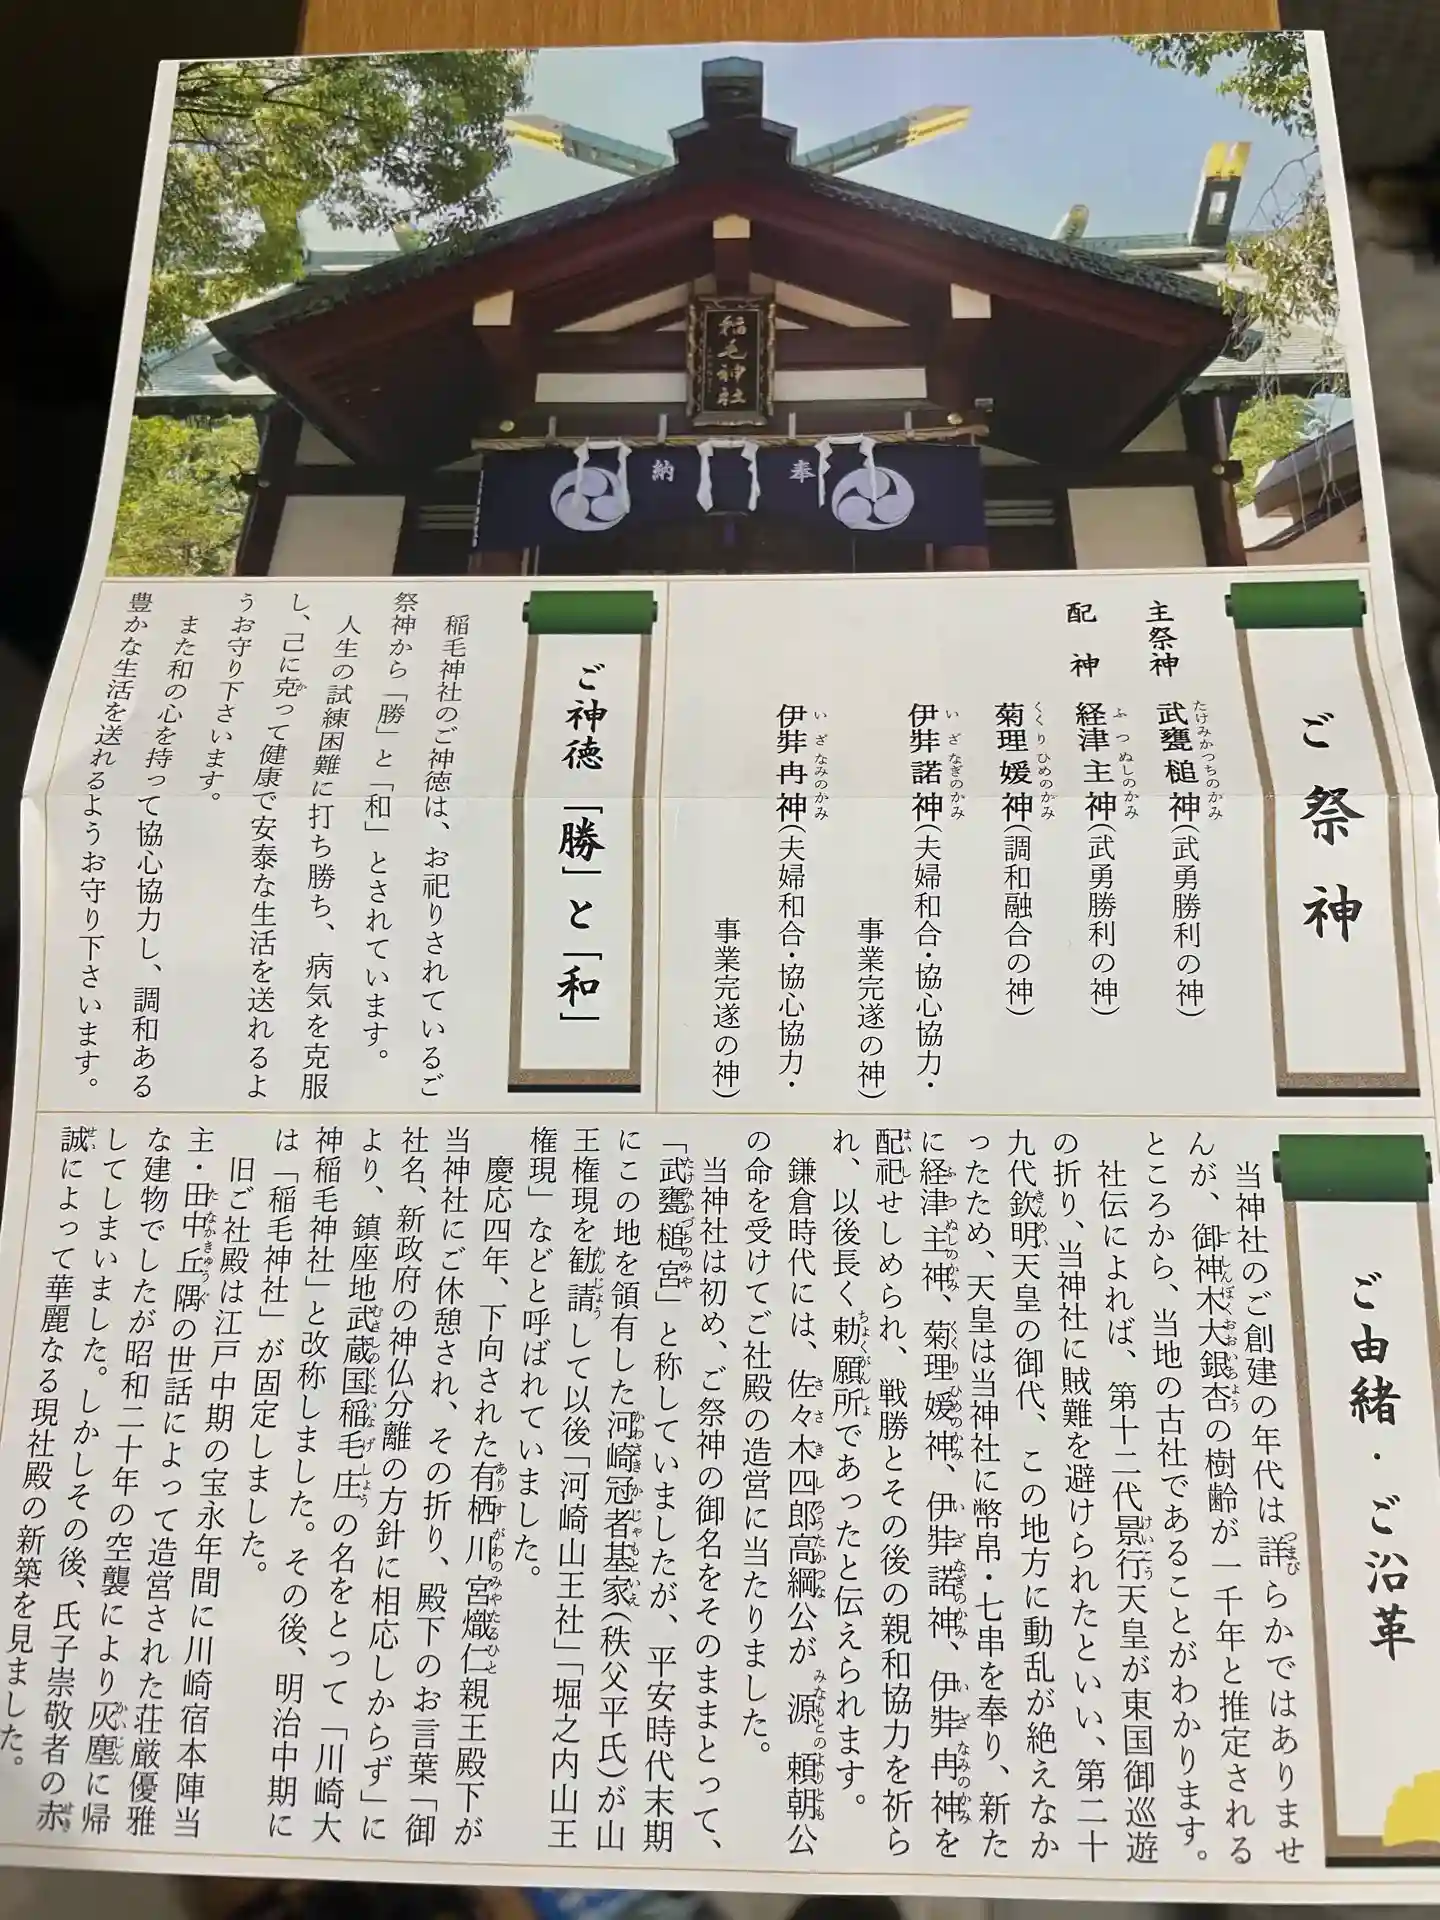 稲毛神社
奉
納
ご祭神
主祭神 武甕槌神(武勇勝利の神)
たけみかつちのかみ
配神 経津主神(武勇勝利の神)
ふつぬしのかみ
菊理媛神(調和融合の神)
くくりひめのかみ
伊弉諾神(夫婦和合・協心協力・
いざなぎのかみ
事業完遂の神)
伊弉冉神(夫婦和合・協心協力・
いざなみのかみ
事業完遂の神)
ご神徳「勝」と「和」
稲毛神社のご神徳は、お祀りされているご
祭神から「勝」と「和」とされています。
人生の試練困難に打ち勝ち、病気を克服
し、己に克って健康で安泰な生活を送れるよ
か
うお守り下さいます。
また和の心を持って協心協力し、調和ある
豊かな生活を送れるようお守り下さいます。
ご由緒・ご沿革
当神社のご創建の年代は詳らかではありませ
つまび
んが、御神木大銀杏の樹齢が一千年と推定される
ごしんぼくおおいちょう
ところから、当地の古社であることがわかります。
社伝によれば、第十二代景行天皇が東国御巡遊
けいこう
の折り、当神社に賊難を避けられたといい、第二十
九代欽明天皇の御代、この地方に動乱が絶えなか
きんめい
ったため、天皇は当神社に幣帛・七串を奉り、新た
に経津主神、菊理媛神、伊弉諾神、伊弉冉神を
ふつぬしのかみ くくりひめのかみ いざなぎのかみ いざなみのかみ
配祀せしめられ、戦勝とその後の親和協力を祈ら
はいし
れ、以後長く勅願所であったと伝えられます。
ちょくがんしょ
鎌倉時代には、佐々木四郎高綱公が源頼朝公
ささきしろうたかつな みなもとのよりとも
の命を受けてご社殿の造営に当たりました。
当神社は初め、ご祭神の御名をそのままとって、
「武甕槌宮」と称していましたが、平安時代末期
たけみかづちのみや
にこの地を領有した河崎冠者基家(秩父平氏)が山
かわさきかじゃもといえ
王権現を勧請して以後「河崎山王社」「堀之内山王
かんじょう
権現」などと呼ばれていました。
慶応四年、下向された有栖川宮熾仁親王殿下が
ありすがわのみやたるひと
当神社にご休憩され、その折り、殿下のお言葉「御
社名、新政府の神仏分離の方針に相応しからず」に
より、鎮座地武蔵国稲毛庄の名をとって「川崎大
むさしのくにいなげしょう
神稲毛神社」と改称しました。その後、明治中期に
は「稲毛神社」が固定しました。
旧ご社殿は江戸中期の宝永年間に川崎宿本陣当
主・田中丘隅の世話によって造営された荘厳優雅
たなかきゅうぐ
な建物でしたが昭和二十年の空襲により灰塵に帰
かいじん
してしまいました。しかしその後、氏子崇敬者の赤
せき
誠によって華麗なる現社殿の新築を見ました。
せい